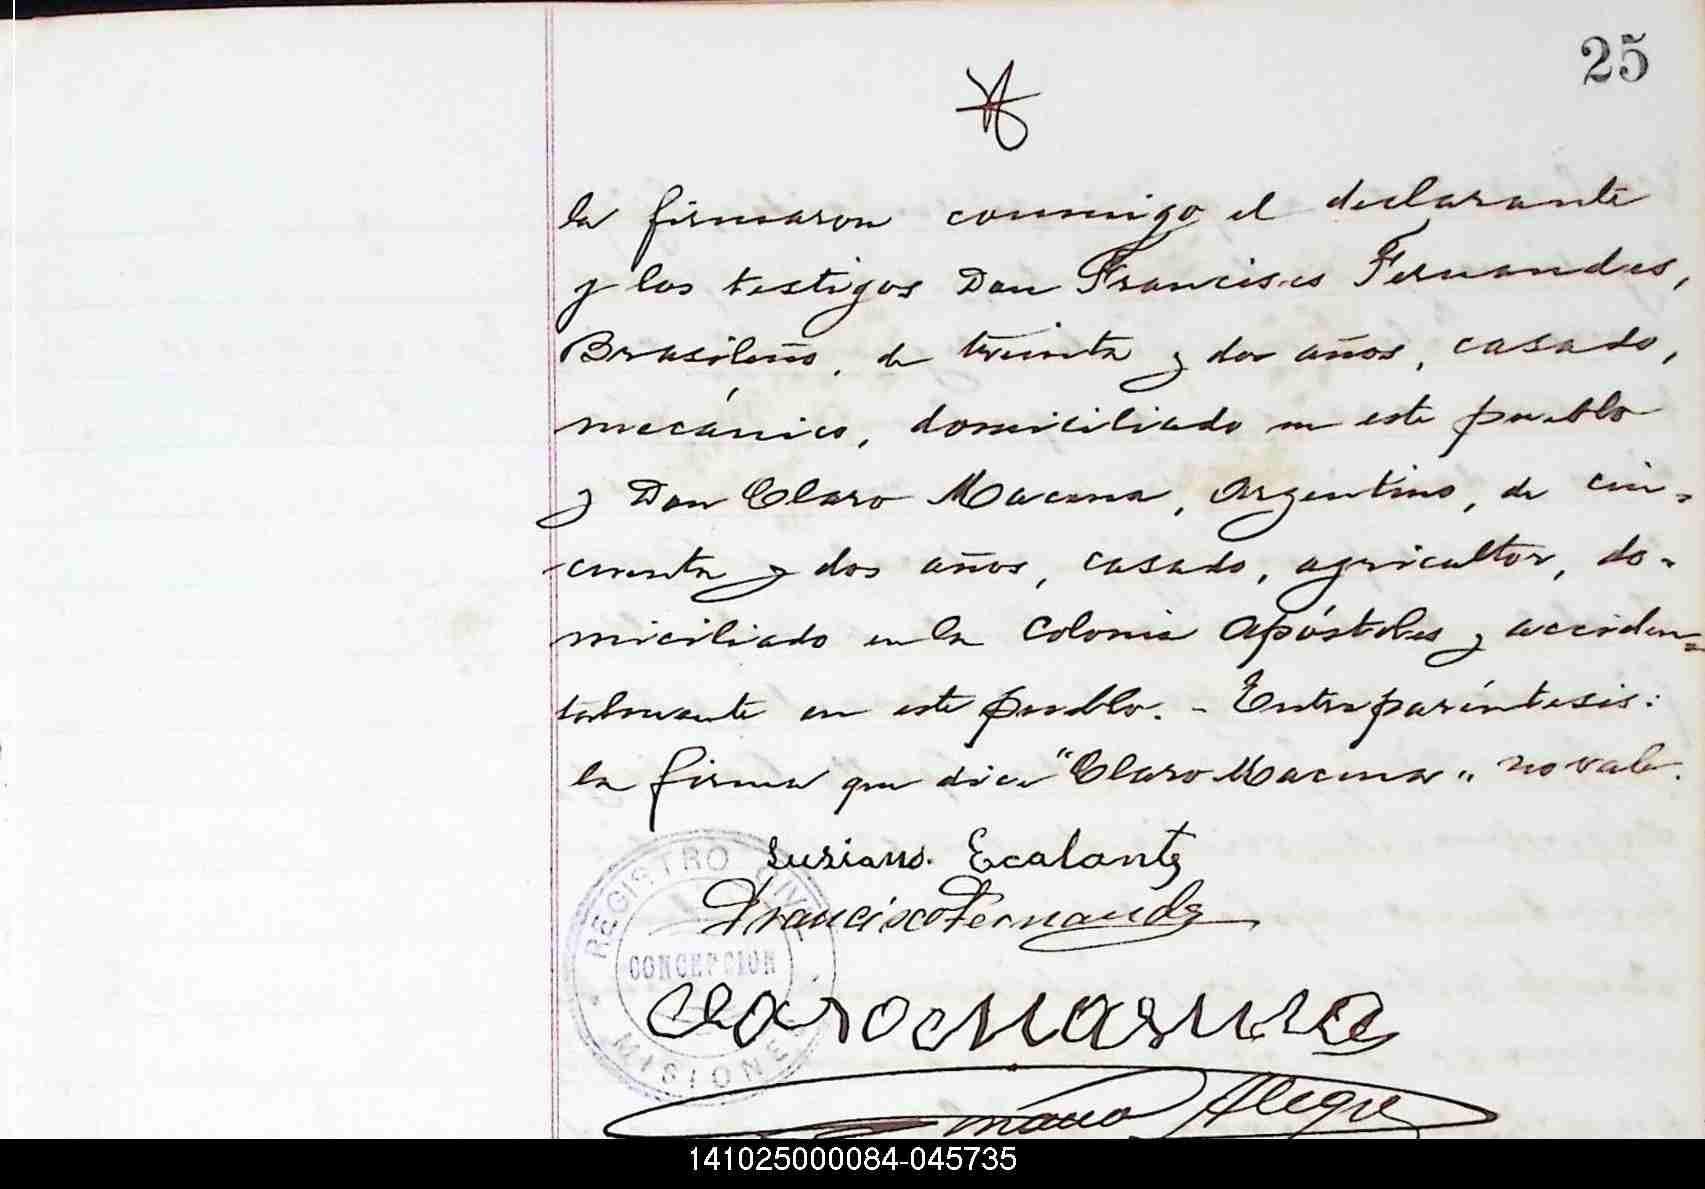 25
la firmaron conmigo el declarante
y los testigos Don Francisco Fernandes,
Brasileño, de treinta y dos años, casado,
mecánico, domiciliado en este pueblo
y Don Claro Macena, Argentino, de cin-
cuenta y dos años, casado, agricultor, do-
miciliado en la Colonia Apóstoles y acciden-
talmente en este pueblo. - Entreparéntesis:
la firma que dice "Claro Macena" no vale.
Lusiano Escalante
Francisco Fernandez
Claro Masena
Alegre
REGISTRO CIVIL
CONCEPCION
MISIONES
141025000084-045735